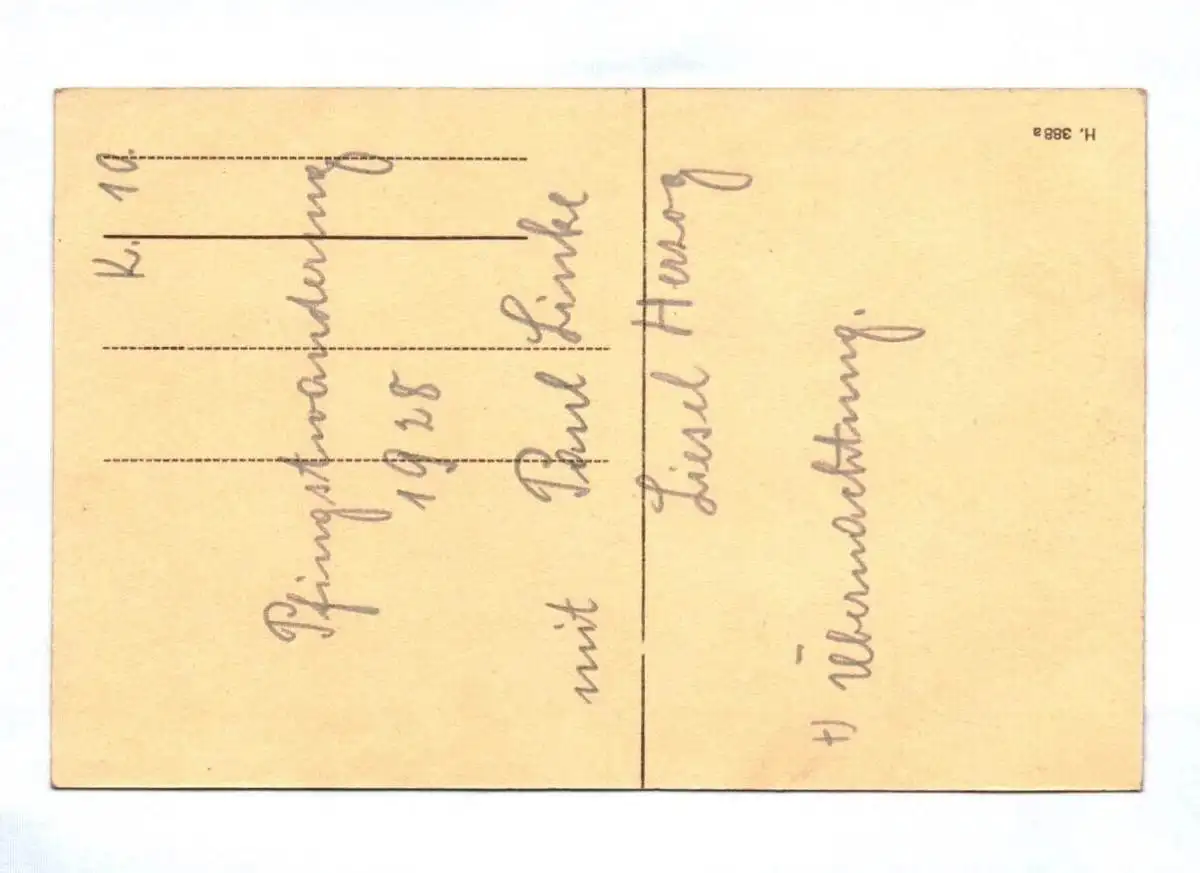 K. 10.
Pfingstwanderung
1928
mit Paul Linke
Liesel Herzog
+) Übernachtung.
H. 388a